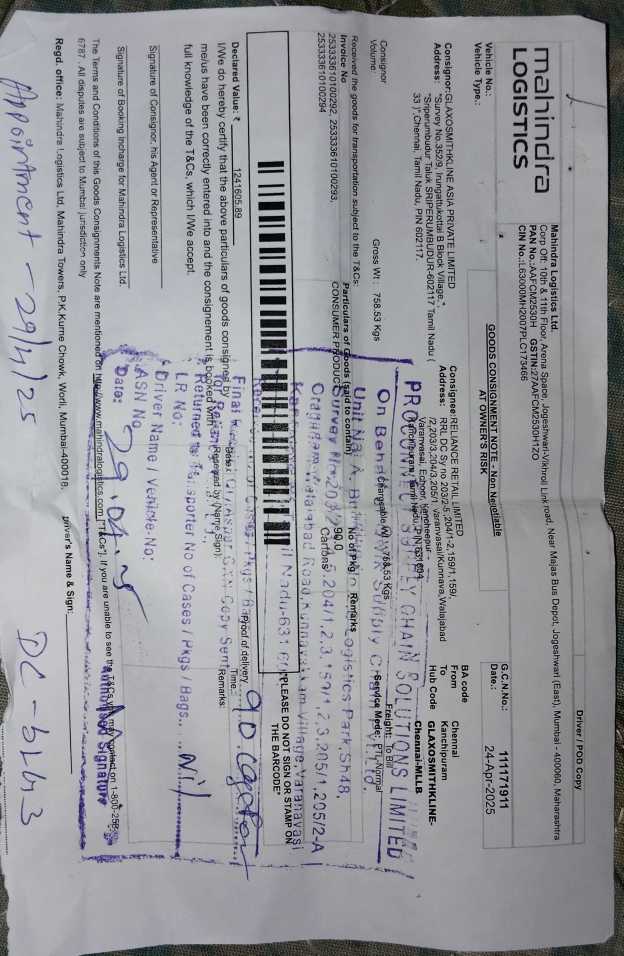 mahindra
LOGISTICS
Driver / POD Copy
Mahindra Logistics Ltd.
Corp Off: 10th & 11th Floor, Arena Space, Jogeshwari-Vikhroli Link road, Near Majas Bus Depot, Jogeshwari (East), Mumbai - 400060, Maharashtra
PAN No.:AAFCM2530H GSTIN:27AAFCM2530H1ZO
CIN No.:L63000MH2007PLC173466
Vehicle No.:
Vehicle Type.:
GOODS CONSIGNMENT NOTE - Non Negotiable
AT OWNER'S RISK
G.C.N.No.: 111171911
Date.: 24-Apr-2025
Consignor:GLAXOSMITHKLINE ASIA PRIVATE LIMITED
Address: "Survey No.352/9, Irungattukottai B Block Village,",
"Sriperumbudur Taluk SRIPERUMBUDUR-602117 Tamil Nadu (
33 )",Chennai, Tamil Nadu, PIN 602117.
Consignee:RELIANCE RETAIL LIMITED
Address: RRL DC Sy no 203/2-5, 204/1-2,159/1,169/,
/2,203/3,204/3,205/1 Varanvasai/Kunnava,Walajabad
Varanvasai, Ezhoor, Kancheepur -
BA code
From Chennai
To Kanchipuram
Hub Code GLAXOSMITHKLINE-
Chennai-MLLB
Consignor
Volume:
Gross Wt : 758.53 Kgs
758.53 Kgs
Freight: To Bill
Service Mode: PTL-Normal
Received the goods for transportation subject to the T&Cs:
Invoice No
Particulars of Goods (said to contain)
No of Pkg
Remarks
253333610100292, 253333610100293,
253333610100294
CONSUMER PRODUCT
90.0
Cartons
"PLEASE DO NOT SIGN OR STAMP ON
THE BARCODE"
Declared Value: ₹ 1241605.89
I/We do hereby certify that the above particulars of goods consigned by
me/us have been correctly entered into and the consignement is booked with
full knowledge of the T&Cs, which I/We accept.
Proof of delivery
Received by (Name Sign):
Time:
Remarks:
Signature of Consignor, his Agent or Representative
Signature of Booking Incharge for Mahindra Logistics Ltd.
PROCONNECT SUPPLY CHAIN SOLUTIONS LIMITED
Logistics Park,Sh48,
204/1,2,3,159/1,2,3,205/1,205/2-A
Village,Varanavasi
90 Carton
Returned to Transporter No of Cases / Pkgs / Bags.....Nil
L.R No:
Driver Name / Vehicle No:
ASN No
Date: 29.04.25
Authorised Signature
The Terms and Conditions of this Goods Consignments Note are mentioned on http://www.mahindralogistics.com ["T&Cs"]. If you are unable to see the T&Cs
6787 . All disputes are subject to Mumbai jurisdiction only
Regd. office : Mahindra Logistics Ltd, Mahindra Towers, P.K.Kurne Chowk, Worli, Mumbai-400018.
Driver's Name & Sign:
Appointment - 29/4/25